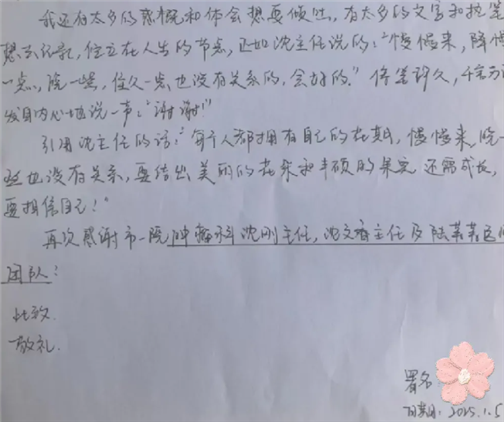 我还有太多的感慨和体会想要倾吐，有太多的文字和故事
想去记录，但立在人生的节点，正如沈主任说的："慢慢来，降慢
一点，晚一些，住久一点也没有关系的，会好的。"停笔许久，千言万
发自内心地说一声："谢谢！"
引用沈主任的话："每个人都拥有自己的花期，慢慢来，晚一
些也没有关系，要结出美丽的花朵和丰硕的果实还需成长，
要相信自己！"
再次感谢市一院肿瘤科沈刚主任，沈文香主任及陆某某医
团队！
此致
敬礼
署名
日期：2025.1.5